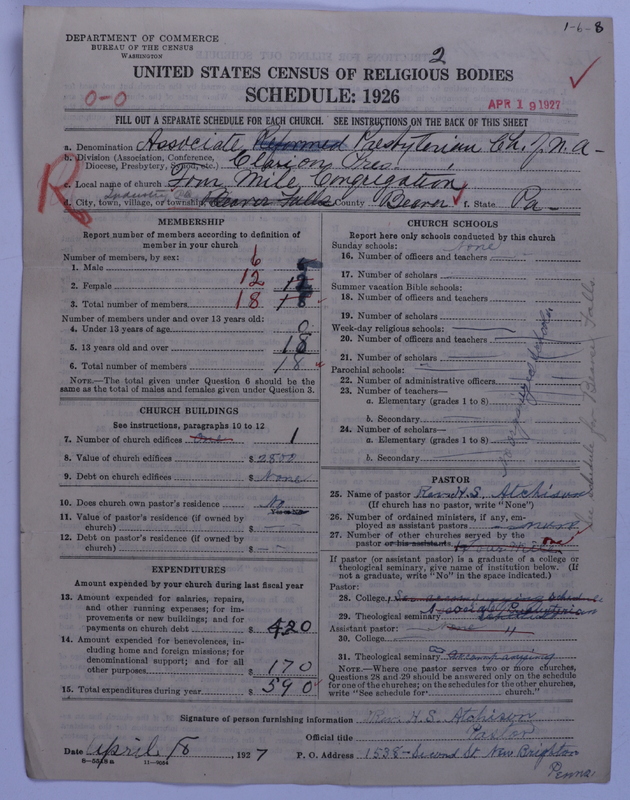 1-6-8
DEPARTMENT OF COMMERCE
BUREAU OF THE CENSUS
WASHINGTON
2
UNITED STATES CENSUS OF RELIGIOUS BODIES
SCHEDULE: 1926
0-0
APR 19 1927
FILL OUT A SEPARATE SCHEDULE FOR EACH CHURCH. SEE INSTRUCTIONS ON THE BACK OF THIS SHEET
a. Denomination Associate Reformed Presbyterian Ch. of N. A-
b. Division (Association, Conference, Diocese, Presbytery, Synod, etc.) Clarion Pres.
R
c. Local name of church Four Mile Congregation
d. City, town, village, or township Beaver Falls County Beaver f. State Pa-
MEMBERSHIP
Report number of members according to definition of
member in your church
Number of members, by sex:
1. Male 6
2. Female 12 12
3. Total number of members 18 18
Number of members under and over 13 years old:
4. Under 13 years of age 0
5. 13 years old and over 18
6. Total number of members 18
NOTE.—The total given under Question 6 should be the
same as the total of males and females given under Question 3.
CHURCH BUILDINGS
See instructions, paragraphs 10 to 12
7. Number of church edifices One 1
8. Value of church edifices $ 2500
9. Debt on church edifices $ None
10. Does church own pastor's residence No
11. Value of pastor's residence (if owned by
church) $
12. Debt on pastor's residence (if owned by
church) $
EXPENDITURES
Amount expended by your church during last fiscal year
13. Amount expended for salaries, repairs,
and other running expenses; for im-
provements or new buildings; and for
payments on church debt $ 420
14. Amount expended for benevolences, in-
cluding home and foreign missions; for
denominational support; and for all
other purposes $ 170
15. Total expenditures during year $ 590
CHURCH SCHOOLS
Report here only schools conducted by this church
Sunday schools: None
16. Number of officers and teachers
17. Number of scholars
Summer vacation Bible schools:
18. Number of officers and teachers
19. Number of scholars
Week-day religious schools:
20. Number of officers and teachers
21. Number of scholars
Parochial schools:
22. Number of administrative officers
23. Number of teachers—
a. Elementary (grades 1 to 8)
b. Secondary
24. Number of scholars—
a. Elementary (grades 1 to 8)
b. Secondary
See schedule for Beaver Falls
PASTOR
25. Name of pastor Rev. H. S. Atchison
(If church has no pastor, write "None")
26. Number of ordained ministers, if any, em-
ployed as assistant pastors none
27. Number of other churches served by the
pastor or his assistants one
If pastor (or assistant pastor) is a graduate of a college or
theological seminary, give name of institution below. (If
not a graduate, write "No" in the space indicated.)
Pastor:
28. College
29. Theological seminary Associate Presbyterian
Assistant pastor:
30. College
31. Theological seminary
NOTE.—Where one pastor serves two or more churches,
Questions 28 and 29 should be answered only on the schedule
for one of the churches; on the schedules for the other churches,
write "See schedule for ---------- church."
Signature of person furnishing information Rev. H. S. Atchison
Official title Pastor
Date April 8, 1927 P. O. Address 1538-Second St New Brighton
Penna.
8-5518 a 11-9064